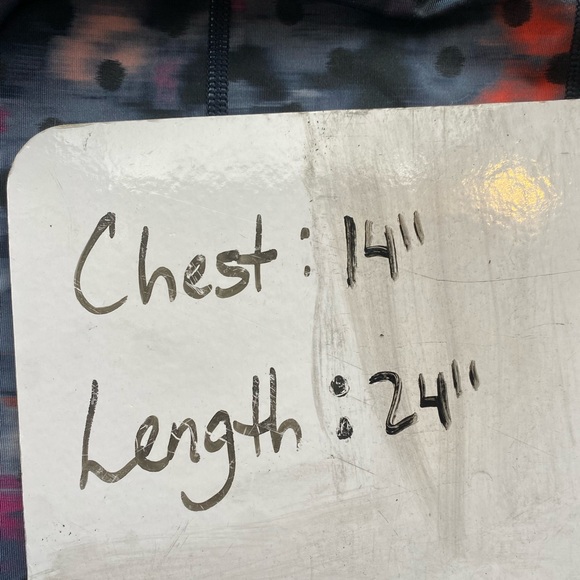 Chest: 14"
Length: 24"